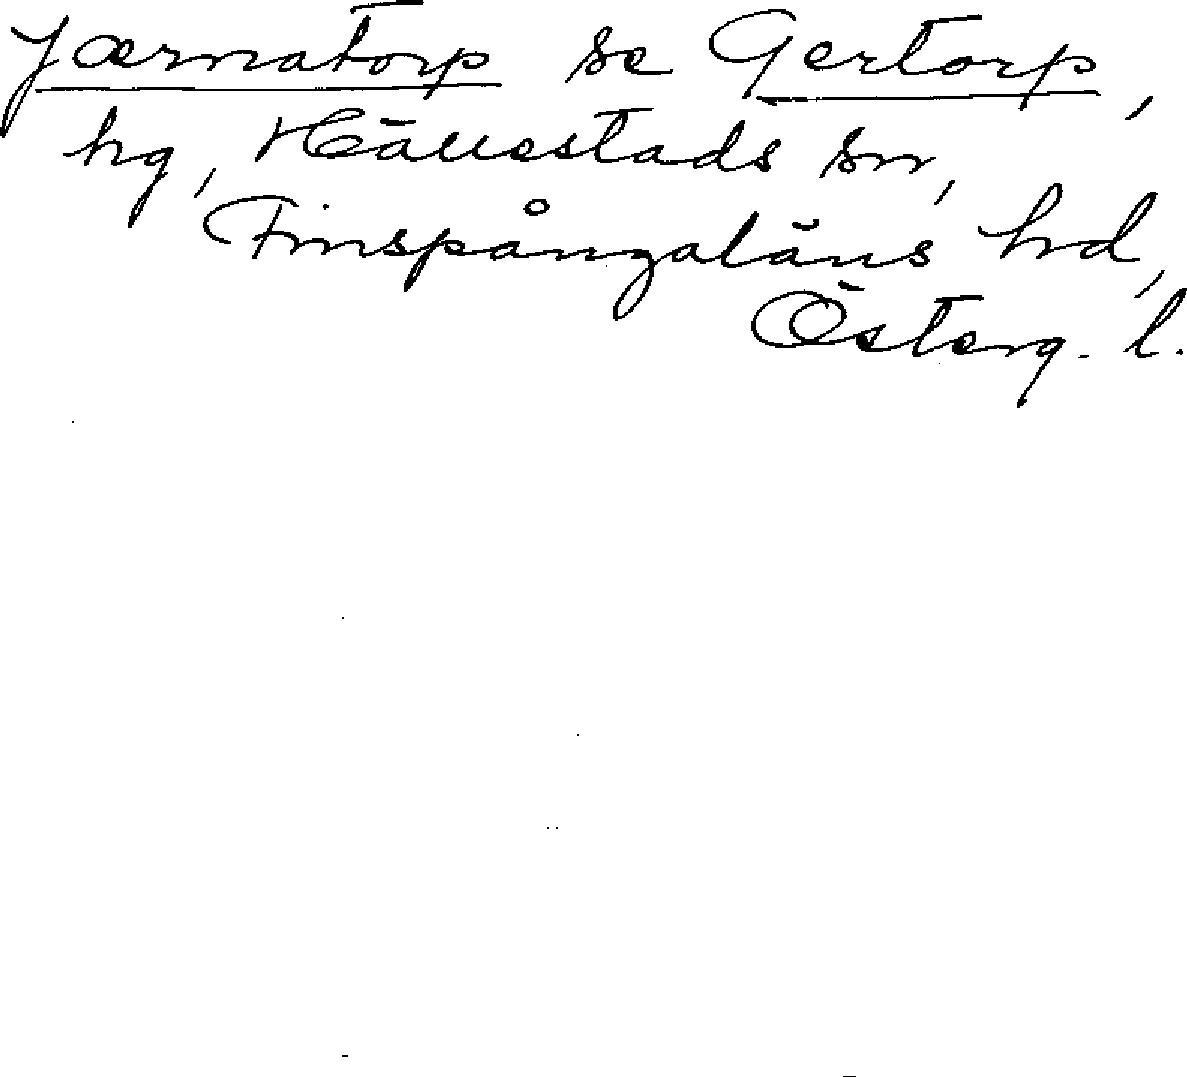 Jærmatorp se Gertorp,
hg, Hällestads sn,
Finspångaläns hd,
Österg. l.